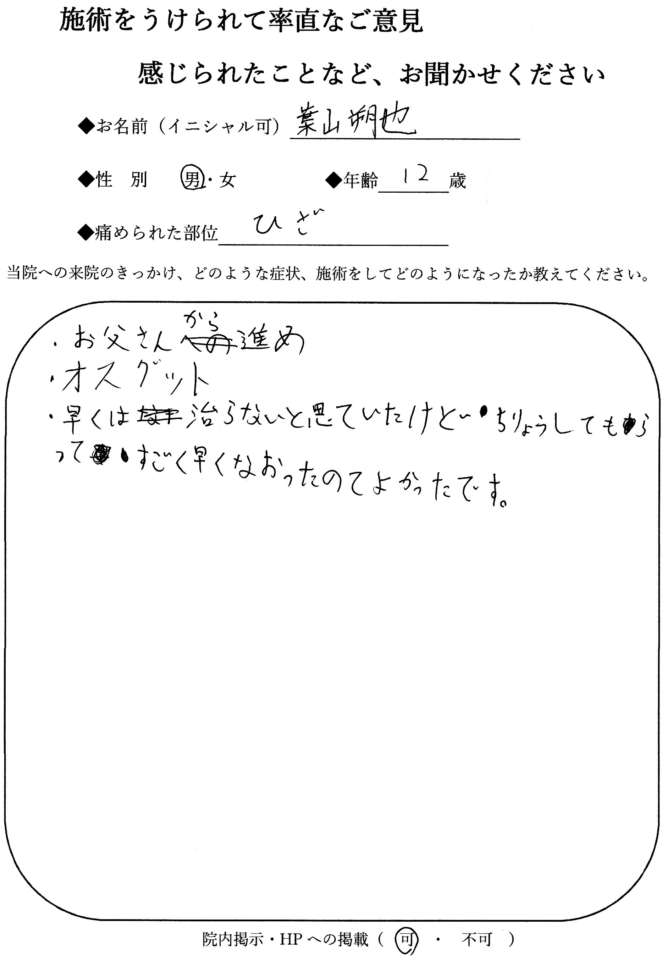 施術をうけられて率直なご意見
感じられたことなど、お聞かせください
◆お名前（イニシャル可） 葉山朔也
◆性　別　男・女　◆年齢 12 歳
◆痛められた部位 ひざ
当院への来院のきっかけ、どのような症状、施術をしてどのようになったか教えてください。
・お父さんから進め
・オスグット
・早くは治らないと思ていたけどちりょうしてもら
ってすごく早くなおったのてよかったです。
院内掲示・HPへの掲載（　可　・　不可　）